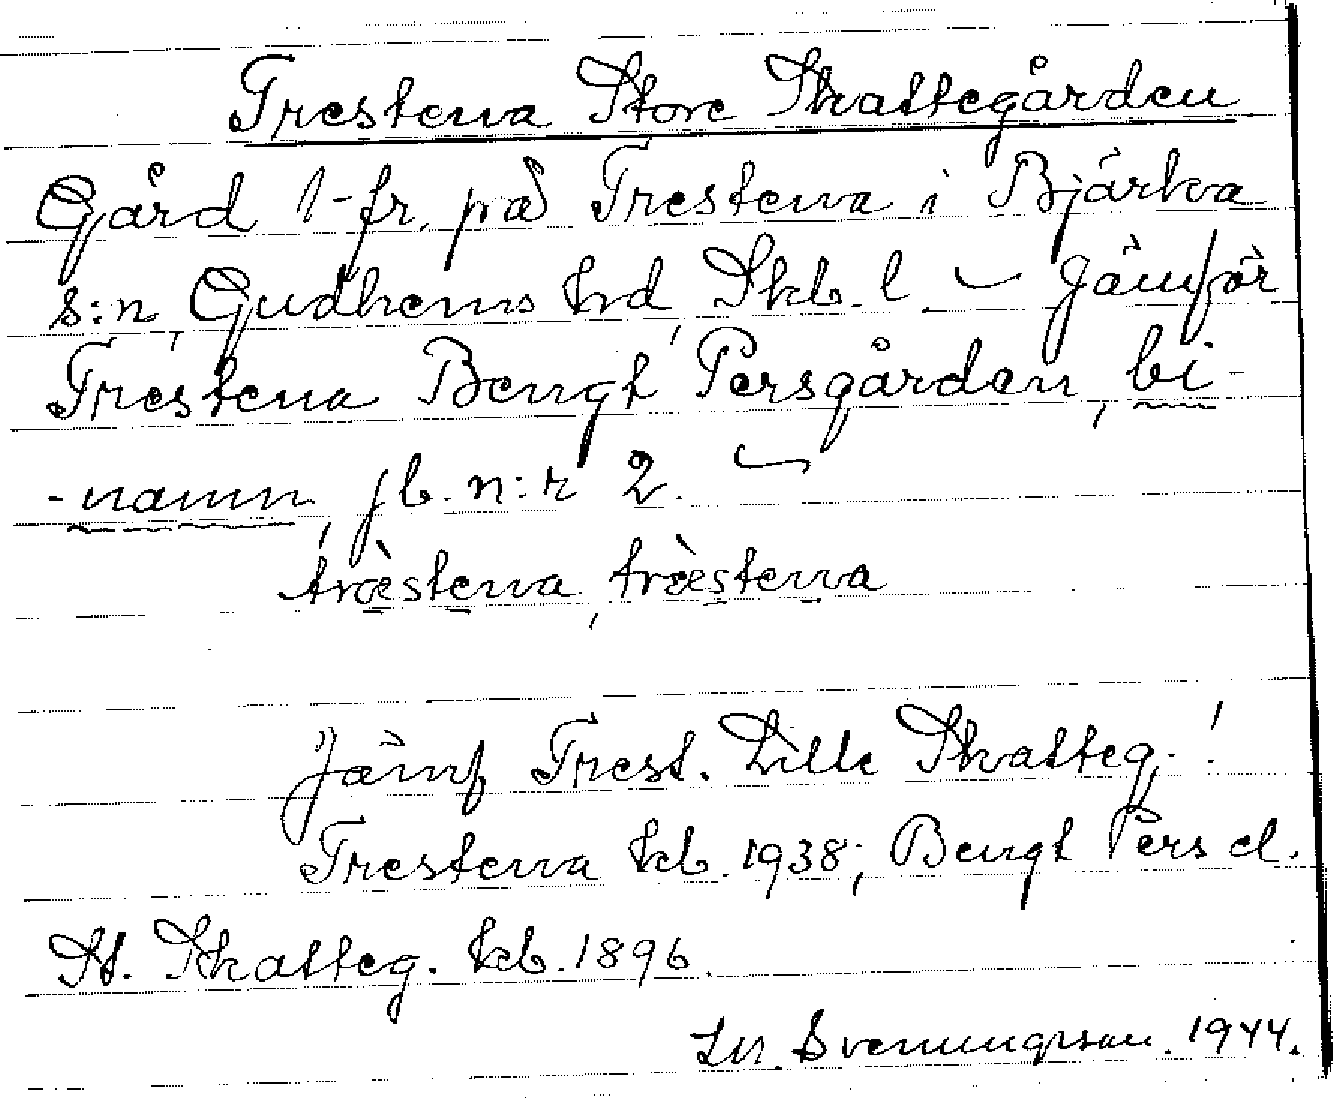 Trestena Store Skattegården
Gård 1-fr. på Trestena i Bjärka
s:n, Gudhems hd, Skb. l. – Jämför
Trestena Bengt Persgården, bi-
-namn, jb. n:r 2. –
træ̀stena, træ̀stena
Jämf Trest. Lille Skatteg.!
Trestena kb. 1938; Bengt Pers el.
St. Skatteg. kb. 1896.
Svenungsson. 1944.